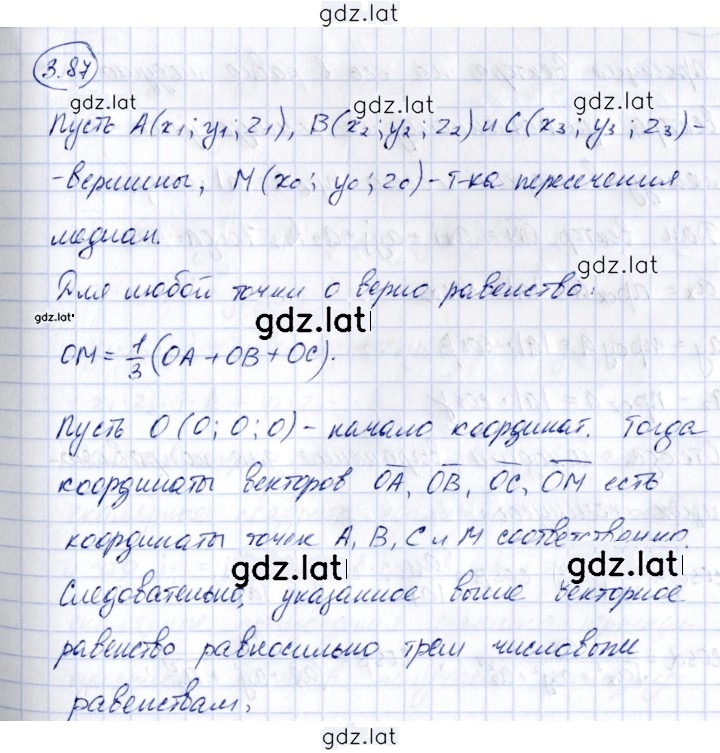 gdz.lat
3.87
gdz.lat
Пусть A(x₁; y₁; z₁), B(x₂; y₂; z₂) и C(x₃; y₃; z₃) -
gdz.lat gdz.lat
- вершины, M(x₀; y₀; z₀) - т-ка пересечения
медиан.
gdz.lat
Для любой точки O верно равенство:
gdz.lat
gdz.lat
OM = 1/3 (OA + OB + OC).
Пусть O(0; 0; 0) - начало координат. Тогда
координаты векторов O̅A̅, O̅B̅, O̅C̅, O̅M̅ есть
координаты точек A, B, C и M соответственно.
gdz.lat gdz.lat
Следовательно, указанное выше векторное
равенство равносильно трем числовым
равенствам:
gdz.lat